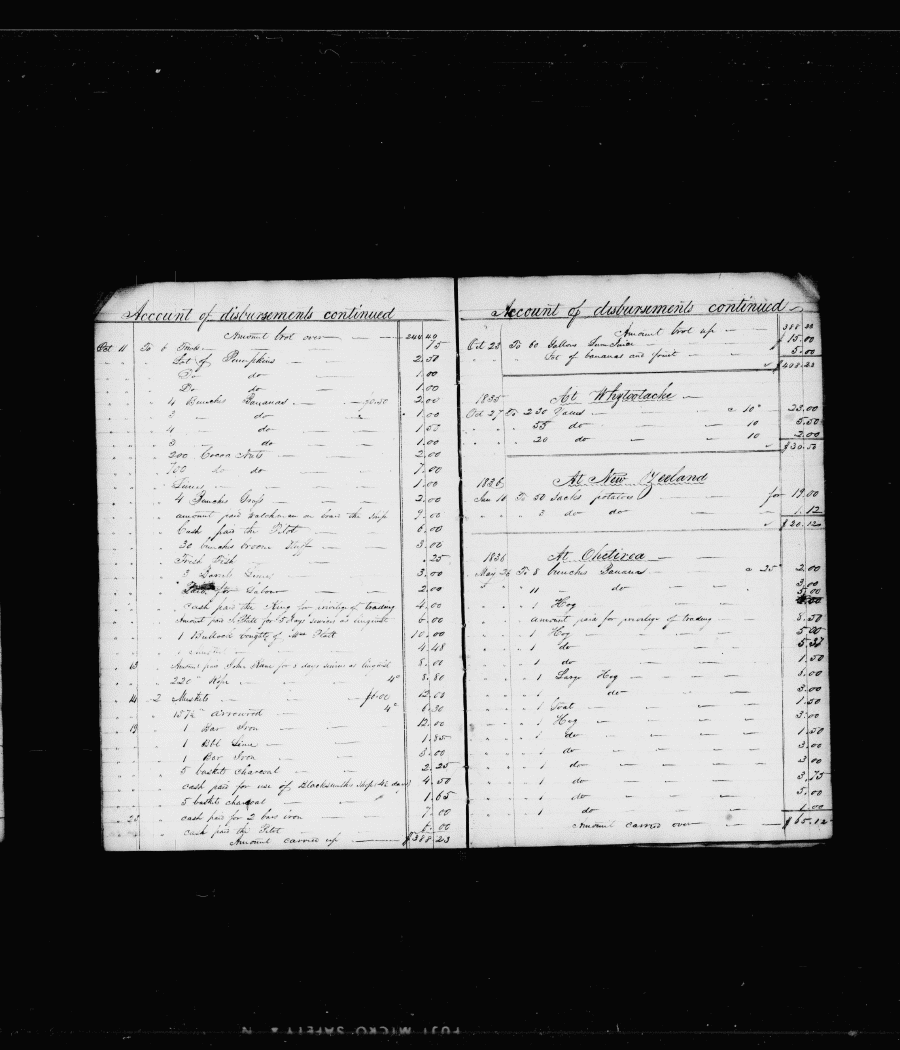 Account of disbursements continued
Amount brot over 244.49
Oct 11 To 6 75
Lot of Pumpkins 2.50
Do do 1.00
Do do 1.00
4 Bunches Bananas 2.00
3 do 1.00
4 do 1.50
3 do 1.00
200 Cocoa Nuts 2.00
700 do do 7.00
Limes 1.00
4 Bunches 2.00
amount paid watchman on board the ship 9.00
Cash paid the Pilot 6.00
30 bunches broom Stuff 3.00
Fresh Fish .25
3 Barrels Limes 3.00
for Labour 2.00
cash paid the King for privilege of trading 4.00
Amount paid for 5 days service as 6.00
1 Bullock bought of Mr Platt 10.00
4.48
13 Amount paid John for 8 days service as 8.00
220 lb Rope 4c 8.80
14 2 Muskets $6.00 12.00
157½ lb arrowroot 4c 6.30
19 1 Bar Iron 12.00
1 Bbl Lime 1.85
1 Bar Iron 3.00
5 baskets charcoal 2.25
cash paid for use of Blacksmiths shop 4½ days 4.50
5 baskets charcoal 1.65
22 cash paid for 2 bars iron 7.00
cash paid the Pilot 6.00
Amount carried up $388.23
Account of disbursements continued
Amount brot up 388.23
Oct 23 To 60 Gallons $ 15.00
Lot of bananas and fruit 5.00
$408.23
1835 At Whytootacke
Oct 27 To 230 a 10c 23.00
55 do 10 5.50
20 do 10 2.00
$30.50
1836 At New Zealand
Jan 10 To 50 sacks potatoes for 19.00
3 do do 1.12
$20.12
1836 At Oheteroa
May 26 To 8 bunches Bananas a 25c 2.00
11 do 3.00
5.00
1 Hog
amount paid for privilege of trading 8.50
1 Hog 5.00
1 do 5.37
1 do 1.50
1 Large Hog 8.00
1 do 3.00
1 Goat 1.50
1 Hog 3.00
1 do 1.50
1 do 3.00
1 do 3.00
1 do 3.75
1 do 5.00
1 do 1.00
Amount carried over $65.12
FUJI MICRO SAFETY